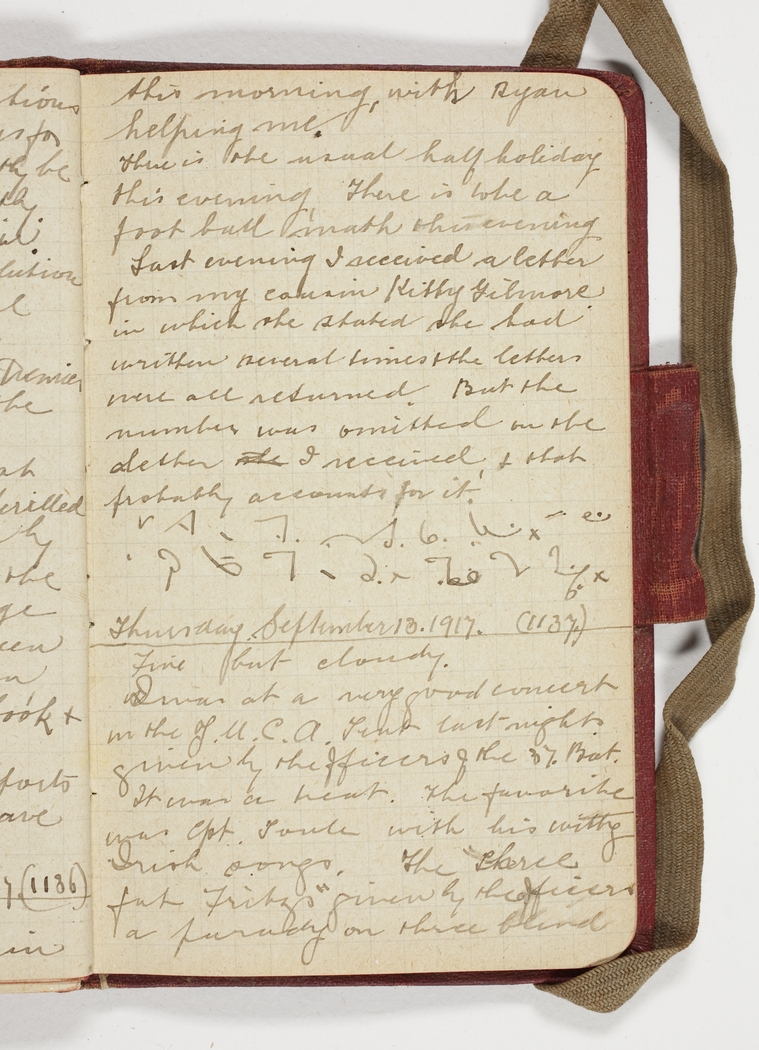 tions
this morning, with Ryan
helping me.
There is the usual half holiday
this evening. There is to be a
foot ball math this evening
Last evening I received a letter
from my cousin Kitty Gilmore
in which she stated she had
written several times & the letters
were all returned. But the
number was omitted on the
letter I received, & that
probably accounts for it.
Thursday September 13. 1917. (1137)
Fine but cloudy.
I was at a very good concert
in the Y.M.C.A. Tent last night
given by the officers of the 37. Bat.
It was a treat. The favorite
was Cpt. with his witty
Irish songs. The "three
fat Fritzs" given by the officers
a parody on three blind
lution
Premier
be
at
by
the
ook &
forts
ave
(1136)
in